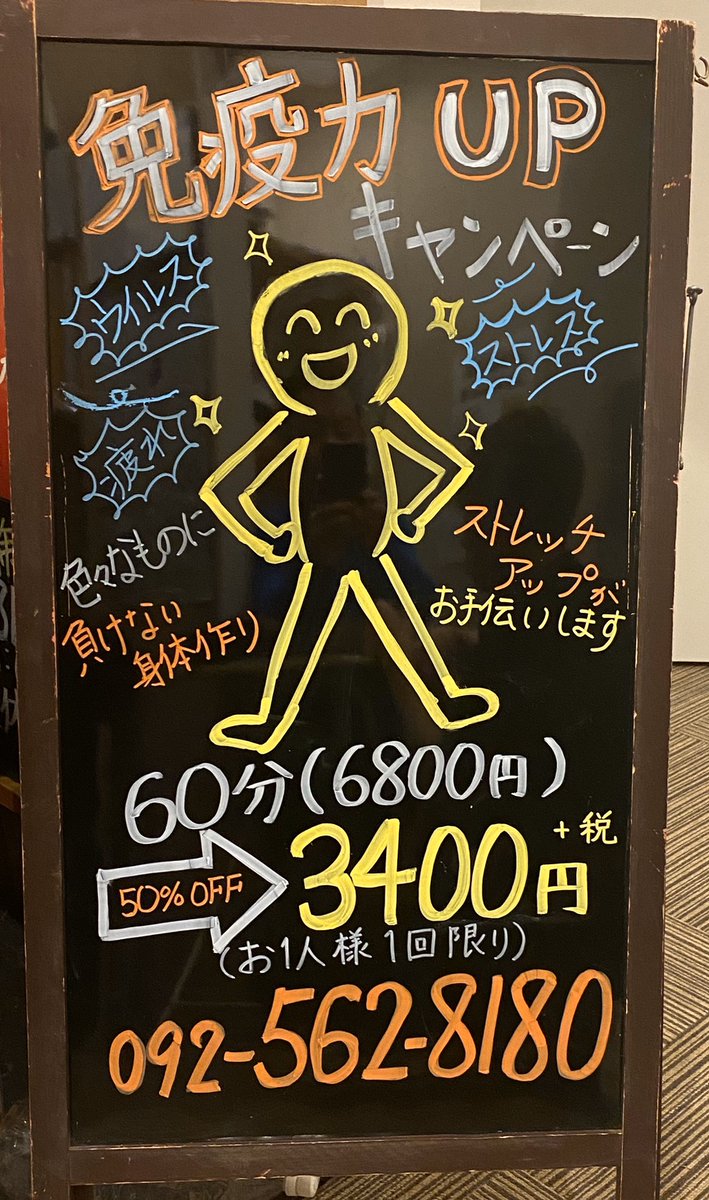 免疫力UP
キャンペーン
ウイルス
ストレス
疲れ
色々なものに
負けない
身体作り
ストレッチ
アップが
お手伝いします
60分(6800円)
50% OFF
3400円
+税
(お1人様1回限り)
092-562-8180